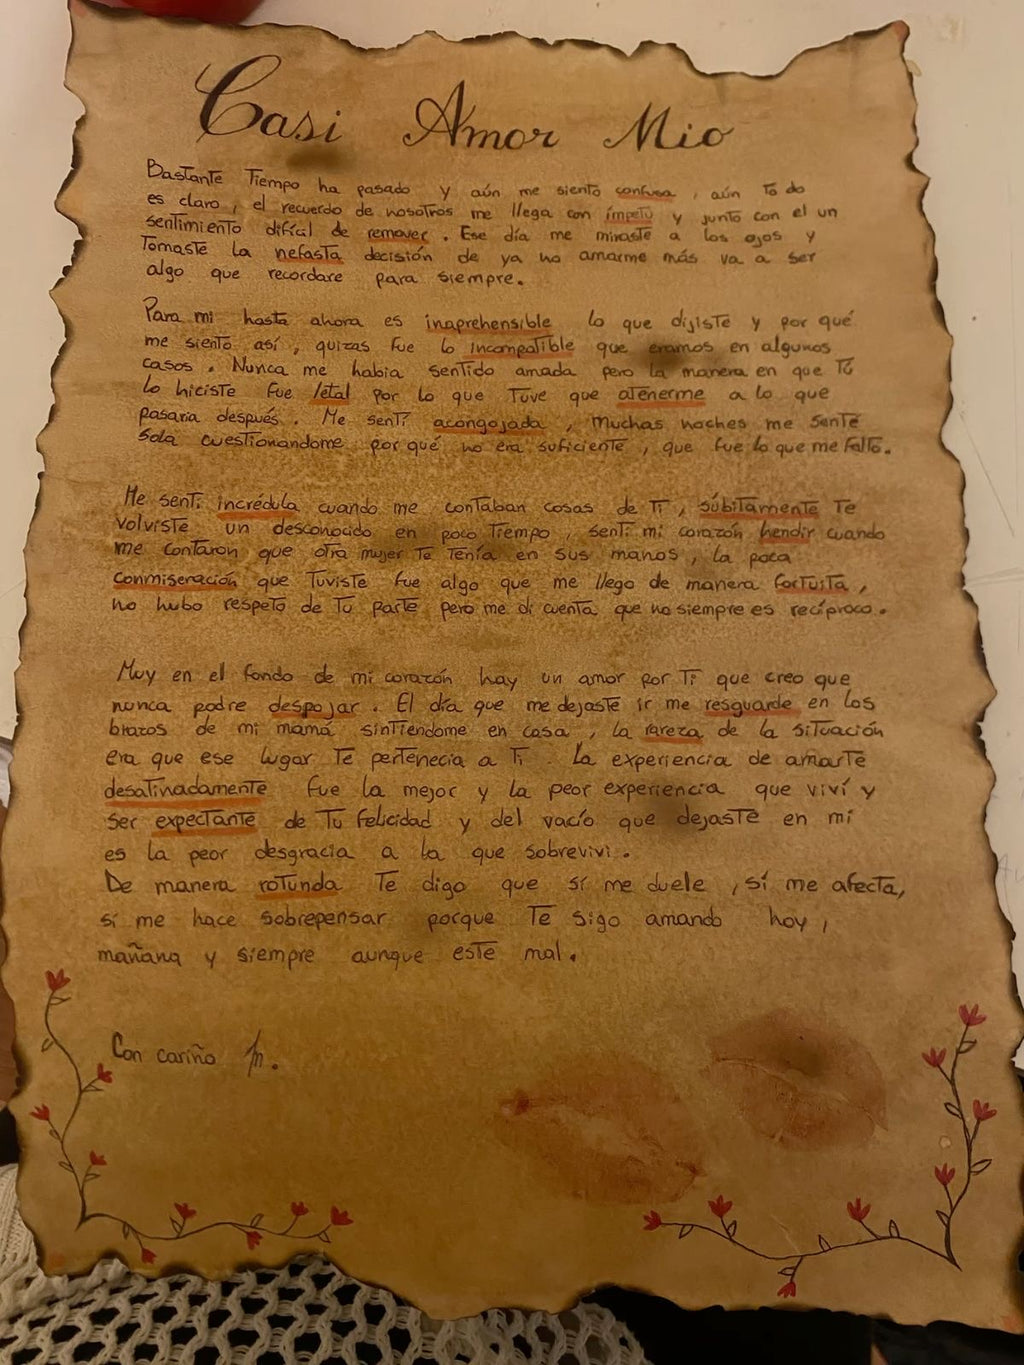 Casi Amor Mio
Bastante Tiempo ha pasado y aún me siento confusa, aún To do
es claro, el recuerdo de nosotros me llega con ímpetu y junto con el un
sentimiento difícal de remover. Ese día me miraste a los ojos y
Tomaste la nefasta decisión de ya no amarme más va a ser
algo que recordare para siempre.
Para mi hasta ahora es inaprehensible lo que dijiste y por qué
me siento así, quizas fue lo incompatible que eramos en algunos
casos. Nunca me habia sentido amada pero la manera en que Tú
lo hiciste fue letal por lo que Tuve que atenerme a lo que
pasaria después. Me sentí acongojada, muchas noches me sente
Sola cuestionandome por qué no era suficiente, que fue lo que me falto.
Me sentí incrédula cuando me contaban cosas de Ti, súbitamente Te
volviste un desconocido en poco Tiempo, sentí mi corazón hendir cuando
me contaron que otra mujer Te Tenía en sus manos, la poca
conmiseración que Tuviste fue algo que me llego de manera fortuita,
no hubo respeto de Tu parte pero me di cuenta que no siempre es recíproco.
Muy en el fondo de mi corazón hay un amor por Ti que creo que
nunca podre despojar. El día que me dejaste ir me resguarde en los
brazos de mi mamá sintiendome en casa, la rareza de la situación
era que ese lugar Te pertenecia a Ti. La experiencia de amarte
desatinadamente fue la mejor y la peor experiencia que viví y
ser expectante de Tu felicidad y del vacío que dejaste en mí
es la peor desgracia a la que sobrevivi.
De manera rotunda Te digo que sí me duele, sí me afecta,
sí me hace sobrepensar porque Te sigo amando hoy,
mañana y siempre aunque este mal.
Con cariño M.